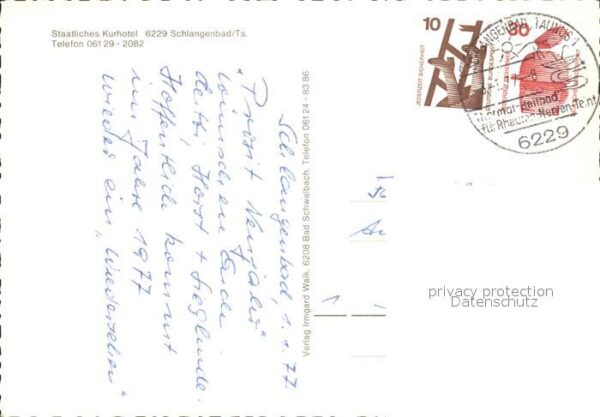 Staatliches Kurhotel 6229 Schlangenbad/Ts.
Telefon 06129 - 2082
Schlangenbad, 1.1.77
"Prosit Neujahr"
wünschen Euch
Horst + Sieglinde.
Hoffentlich kommt
im Jahre 1977
wieder ein "Wiedersehen"
Verlag Irmgard Walk, 6208 Bad Schwalbach, Telefon 06124 - 8386
10
JEDERZEIT SICHERHEIT
30
SCHLANGENBAD, TAUNUS 1
Thermal-Heilbad
für Rheuma-Nerven
6229
privacy protection
Datenschutz